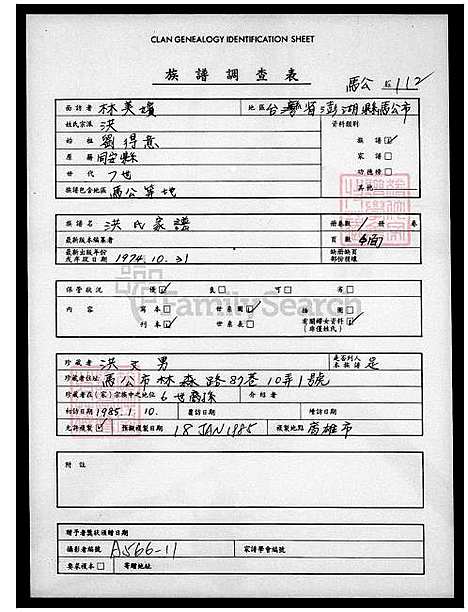 CLAN GENEALOGY IDENTIFICATION SHEET
族譜調查表
馬公 112
面訪者 林美嬪 地區 台灣省澎湖縣馬公市
姓氏宗派 洪 資料類別
始祖 劉得意 族譜 ☑
原籍 同安縣 家譜 ☐
世代 7世 功德榜 ☐
族譜包含地區 馬公等地 其他
族譜名 洪氏家譜 冊卷數 1 冊 卷
最新版本編纂者 頁數
最新出版年份 或序跋日期 1974.10.31 缺冊缺頁 部份種類
保管狀況 優 ☑ 良 ☐ 可 ☐ 劣 ☐
內容 寫本 ☐ 世系圖 ☑ 插圖 ☐
刊本 ☑ 世系表 ☐ 有關婦女資料 (非僅姓氏) ☑
FamilySearch
珍藏者 洪文男 是否列入 本族譜 是
珍藏者住址 馬公市林森路87巷10弄1號
珍藏者在(家)宗族中之地位 6世裔孫 介紹者
初訪日期 1985.1.10. 複訪日期 續訪日期
允許複製 ☑ 拍攝複製日期 18 JAN 1985 複製地點 高雄市
附註
贈予者獎狀頒贈日期
攝影者編號 A566-11 家譜學會編號
要求複本 ☐ 寄贈地址